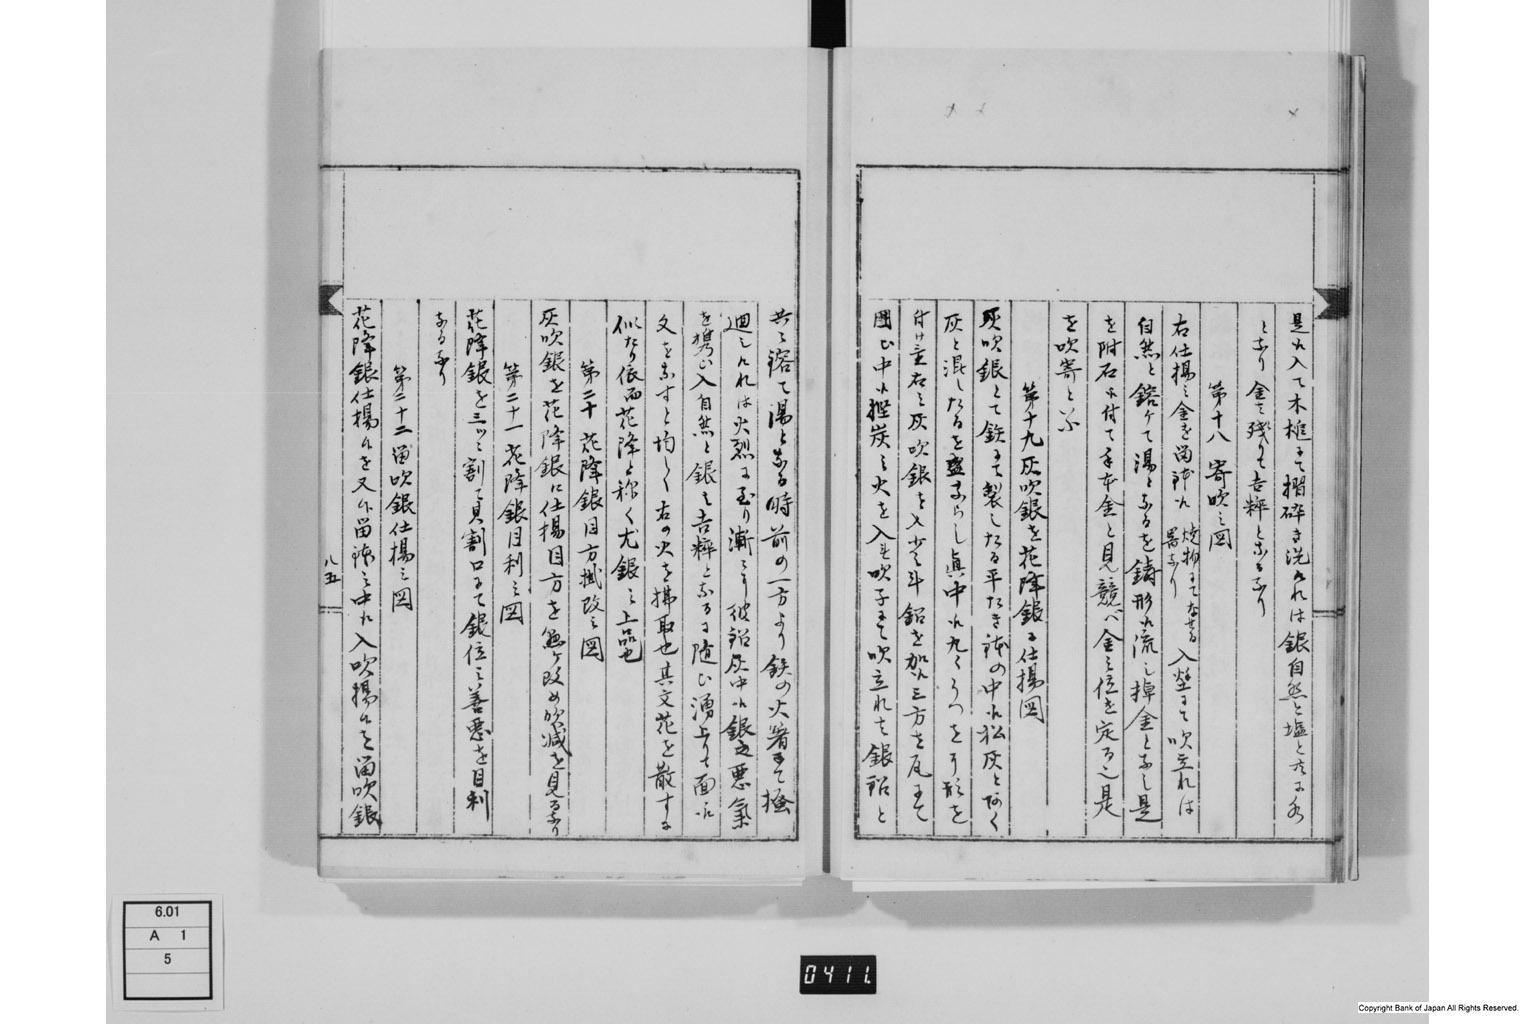 是れ入て木槌にて摺砕き洗けれは銀自然と塩と共に水
となり金は残りて吉粋となるなり
第十八 寄吹之図
右仕揚之金を留鉢に 焼物にてなせる器なり 入壁にて吹立れは
自然と鎔ケて湯となるを鋳形に流し棹金となし是
を附石に付て手本金と見競べ金之位を定る也是
を吹寄と云
第十九 灰吹銀を花降銀に仕揚図
灰吹銀とて鉄にて製したる平たき鉢の中に松灰と
灰と混したるを盛ならし真中に丸くうつをり形を
付け置右之灰吹銀を入少々斗鉛を加へ三方を瓦にて
囲ひ中に堅炭之火を入れ吹子にて吹立れは銀鉛と
共に鎔て湯となる時前の一方より鉄の火箸にて掻
廻しけれは火烈に至り漸々に彼鉛灰中に銀之悪気
を携ひ入自然と銀は吉粋となるに随ひ湧上りて面に
文をなすと均しく右の火を掃取也其文花を散すに
似たり依而花降と称く尤銀之上品也
第二十 花降銀目方掛改之図
灰吹銀を花降銀に仕揚目方を懸ケ改め吹減を見るなり
第二十一 花降銀目利之図
花降銀を三ツに割て真割口にて銀位之善悪を目利
なるなり
第二十二 留吹銀仕揚之図
花降銀仕揚候を又々留鉢之中に入吹揚候を留吹銀
八五
6.01
A 1
5
0411
Copyright Bank of Japan All Rights Reserved.